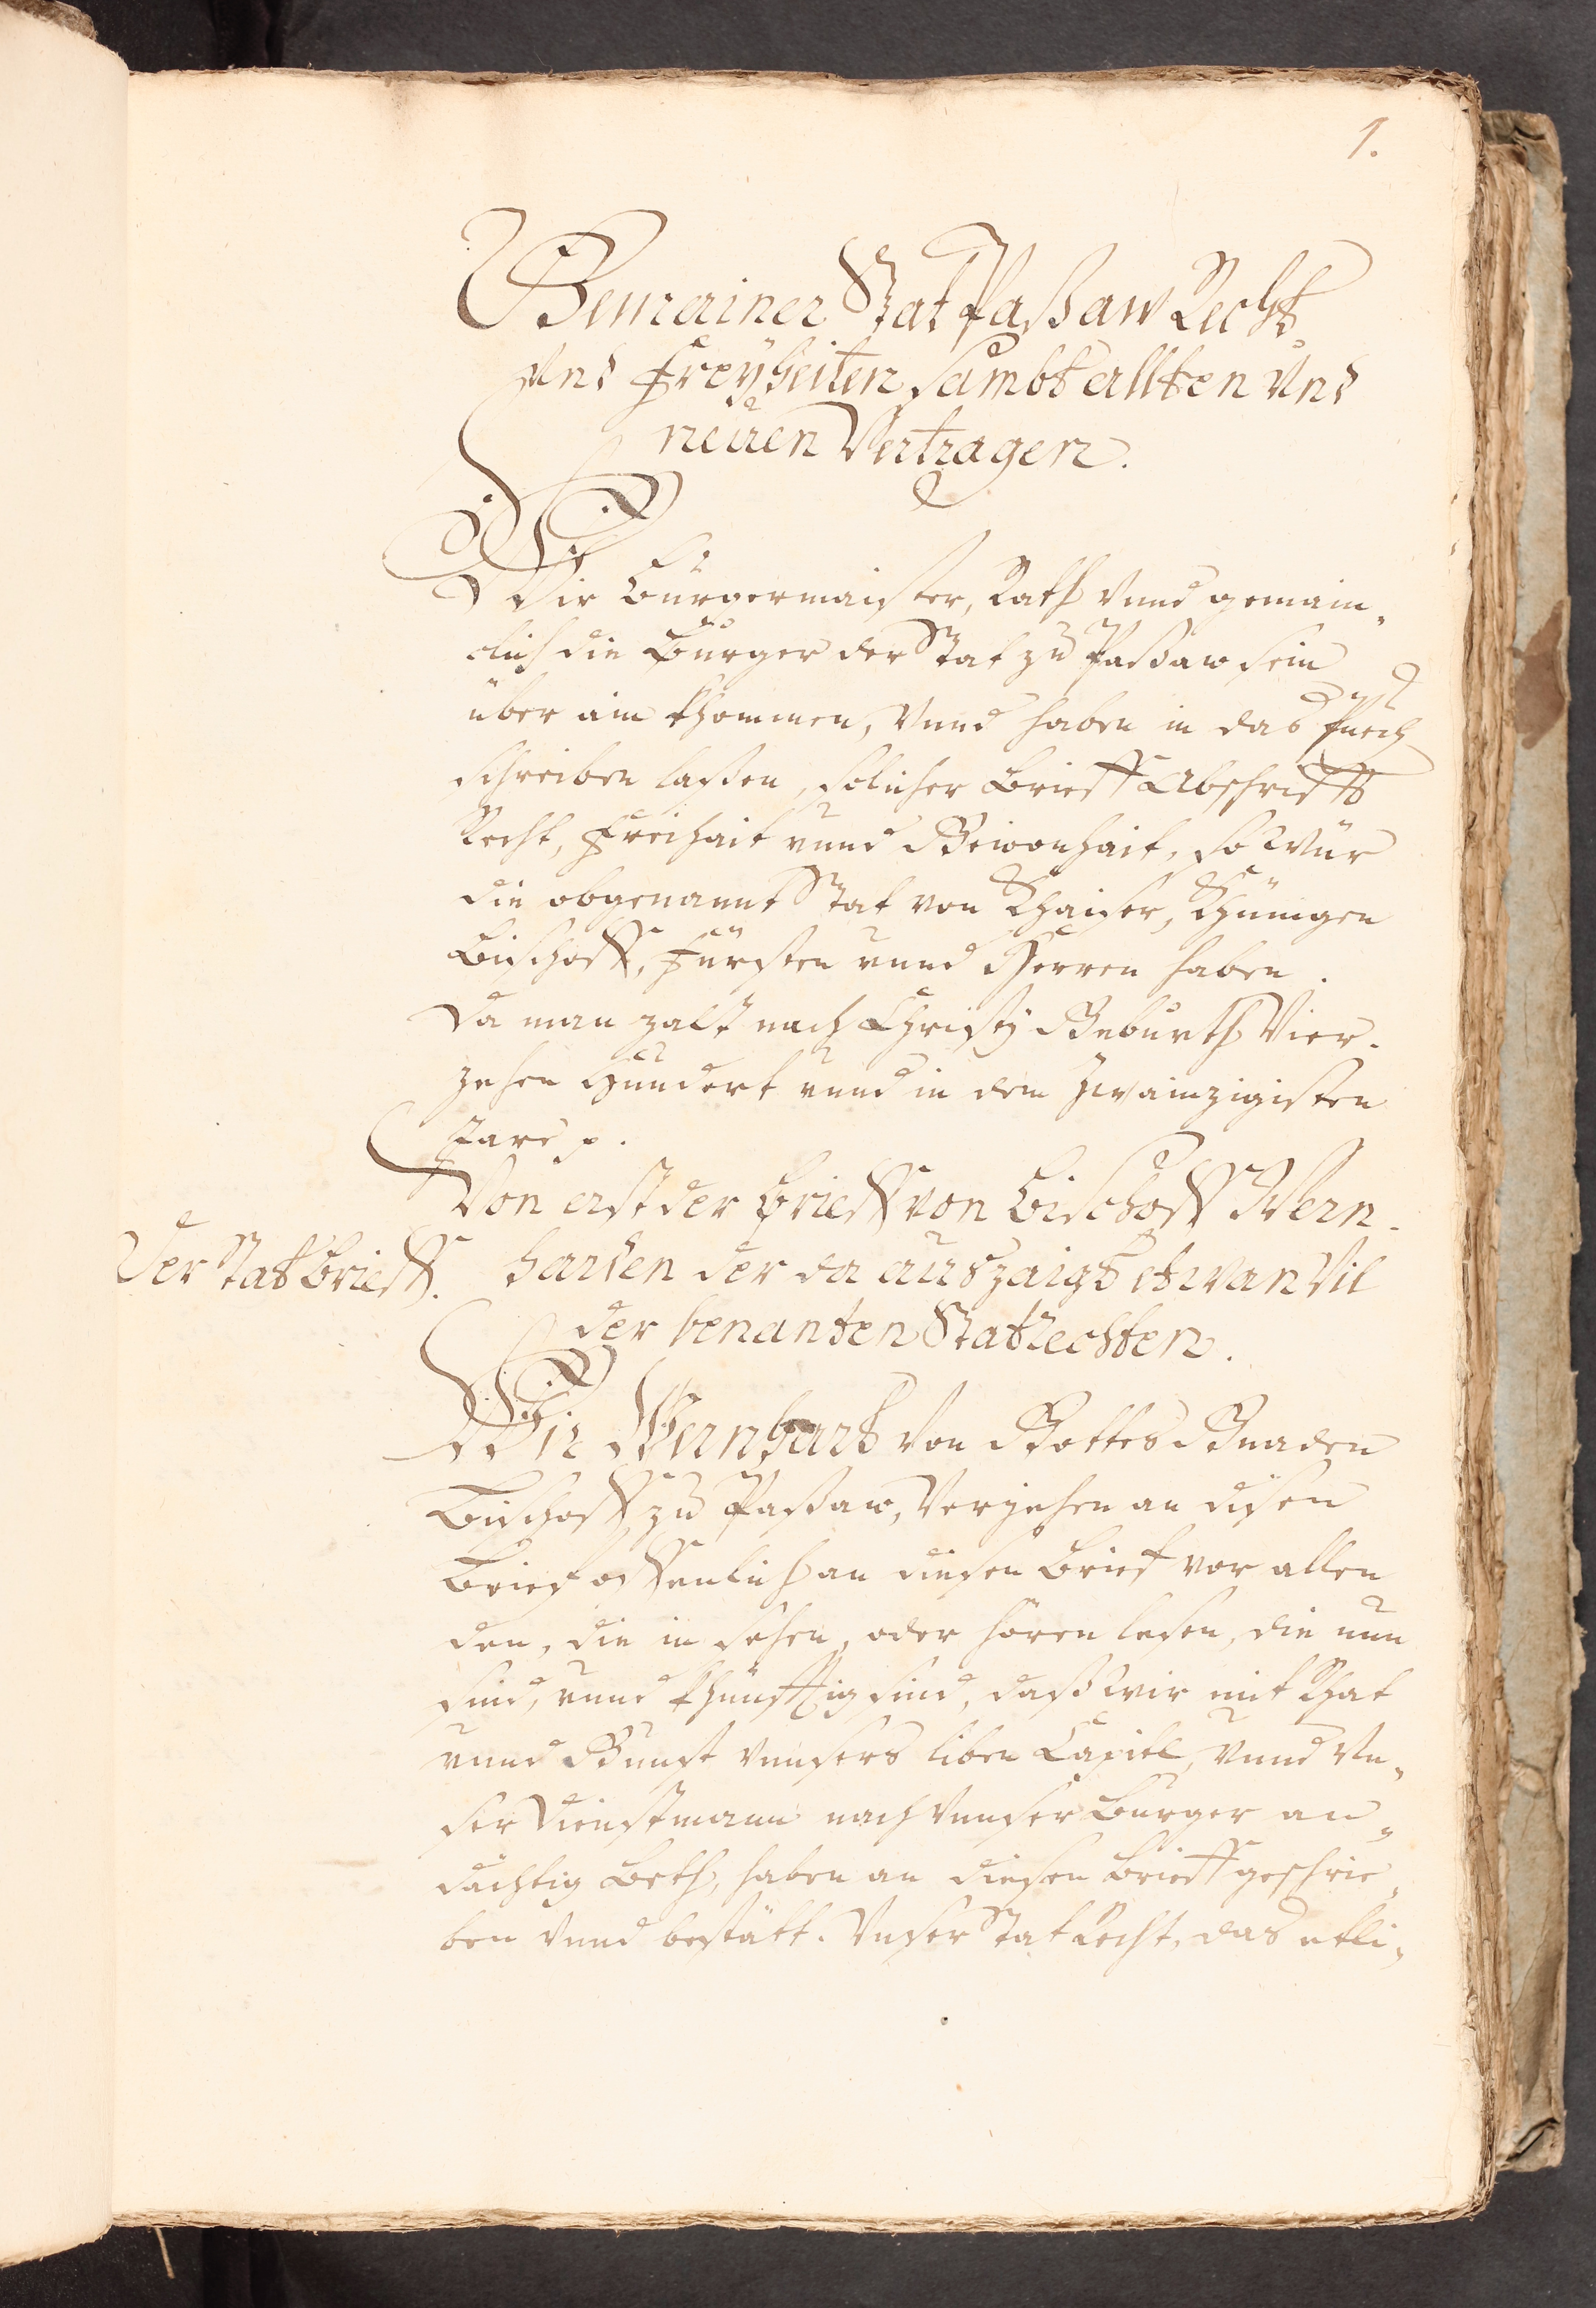 1.
Gemainer Stat Paßaw Recht
Und Freyheiten sambt allten Und
neüen Vertragen.
Wir Burgermaister, Rath Vnnd gemain„
clich die Burger der Stat zu Paßaw sein
über ain khommen, Vnnd haben in das Puech
schreiben laßen, solicher Brieff Abschrifft
Recht, Freihait vnnd Gewonhait, so Wür
die obgenannt Stat von Khaiser, Khünigen
Bischoff, Fürsten vnnd Herren haben.
Da man zalt nach Christj Geburth Vier„
zehen Hundert vnnd in dem Zwainzigisten
Jare p.
Von erst der Brieff von Bischoff Wern„
Der Stat Brieff. harten der da auszaigt etwan Vil
der benanten Statrechten.
Wir Wernhart Von Gottes Gnaden
Bischoff zu Paßaw, Verjehen an disen
Brief offenlich an diesen Brief vor allen
den, die in sehen, oder hören lesen, die nun
sind, vnnd khünfftig sind, daß Wir mit Rhat
vnnd Gunst vnnsers liben Capitl, Vnnd Vn„
ser Dienstmann nach Vnnser Burger an„
dächtig Beth, haben an diesen Brieff geschrie„
ben Vnnd bestätt. Vnser Stat Recht, das etli„